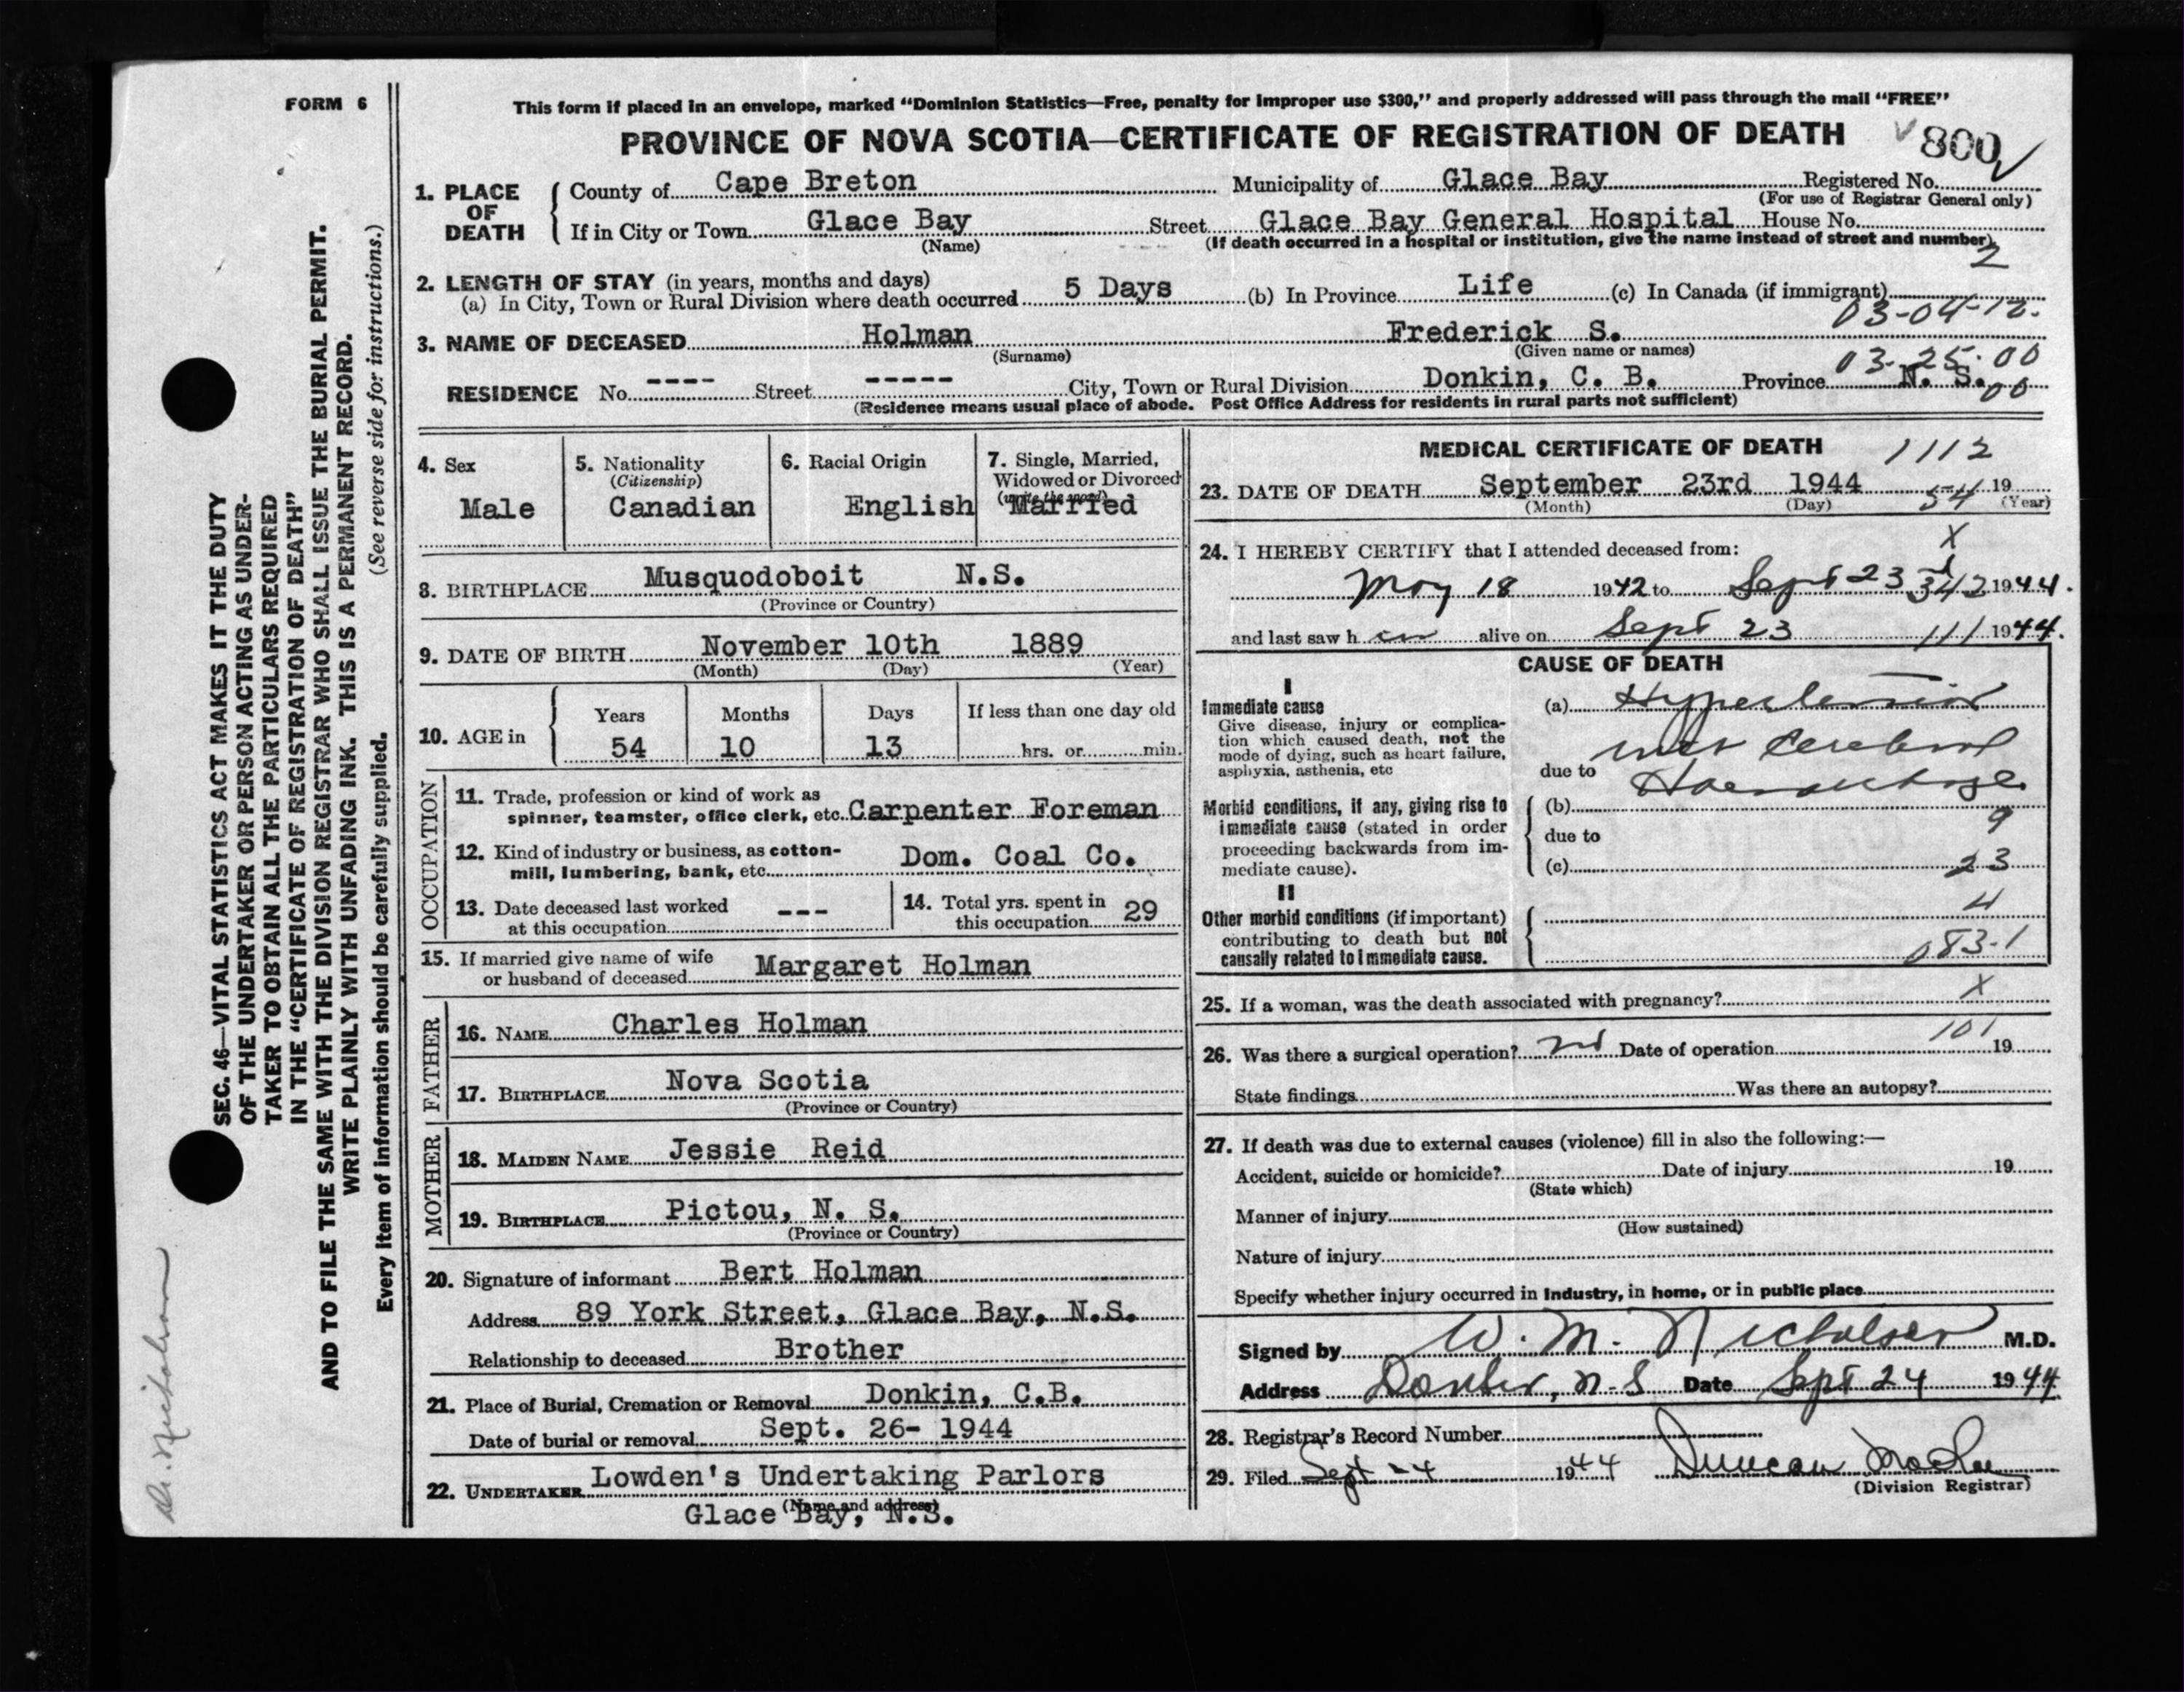 FORM 6
This form if placed in an envelope, marked "Dominion Statistics—Free, penalty for improper use $300," and properly addressed will pass through the mail "FREE"
PROVINCE OF NOVA SCOTIA—CERTIFICATE OF REGISTRATION OF DEATH
800
1. PLACE OF DEATH
County of Cape Breton Municipality of Glace Bay Registered No.
(For use of Registrar General only)
If in City or Town Glace Bay Street Glace Bay General Hospital House No.
(Name) (If death occurred in a hospital or institution, give the name instead of street and number)
2
2. LENGTH OF STAY (in years, months and days)
(a) In City, Town or Rural Division where death occurred 5 Days (b) In Province Life (c) In Canada (if immigrant)
03-04-12.
3. NAME OF DECEASED Holman Frederick S.
(Surname) (Given name or names)
03-25-00
RESIDENCE No. ---- Street ----- City, Town or Rural Division Donkin, C. B. Province N. S.
00
(Residence means usual place of abode. Post Office Address for residents in rural parts not sufficient)
4. Sex
Male
5. Nationality
(Citizenship)
Canadian
6. Racial Origin
English
7. Single, Married,
Widowed or Divorced
(write the word)
Married
8. BIRTHPLACE Musquodoboit N.S.
(Province or Country)
9. DATE OF BIRTH November 10th 1889
(Month) (Day) (Year)
10. AGE in
Years Months Days If less than one day old
54 10 13 hrs. or min.
OCCUPATION
11. Trade, profession or kind of work as
spinner, teamster, office clerk, etc. Carpenter Foreman
12. Kind of industry or business, as cotton-
mill, lumbering, bank, etc. Dom. Coal Co.
13. Date deceased last worked
at this occupation ---
14. Total yrs. spent in
this occupation 29
15. If married give name of wife
or husband of deceased Margaret Holman
FATHER
16. NAME Charles Holman
17. BIRTHPLACE Nova Scotia
(Province or Country)
MOTHER
18. MAIDEN NAME Jessie Reid
19. BIRTHPLACE Pictou, N. S.
(Province or Country)
20. Signature of informant Bert Holman
Address 89 York Street, Glace Bay, N.S.
Relationship to deceased Brother
21. Place of Burial, Cremation or Removal Donkin, C.B.
Date of burial or removal Sept. 26- 1944
22. UNDERTAKER Lowden's Undertaking Parlors
(Name and address)
Glace Bay, N.S.
MEDICAL CERTIFICATE OF DEATH
1112
23. DATE OF DEATH September 23rd 1944 54 19
(Month) (Day) (Year)
X
24. I HEREBY CERTIFY that I attended deceased from:
May 18 1942 to Sept 23 342 1944.
and last saw h im alive on Sept 23 111 1944.
CAUSE OF DEATH
I
Immediate cause
Give disease, injury or complica-
tion which caused death, not the
mode of dying, such as heart failure,
asphyxia, asthenia, etc
(a) Hypertension
with Cerebral
due to Haemorrhage
Morbid conditions, if any, giving rise to
immediate cause (stated in order
proceeding backwards from im-
mediate cause).
(b)
9
due to
(c) 23
II
Other morbid conditions (if important)
contributing to death but not
causally related to immediate cause.
4
083-1
25. If a woman, was the death associated with pregnancy? X
101
26. Was there a surgical operation? no Date of operation 19
State findings Was there an autopsy?
27. If death was due to external causes (violence) fill in also the following:—
Accident, suicide or homicide? Date of injury 19
(State which)
Manner of injury
(How sustained)
Nature of injury
Specify whether injury occurred in industry, in home, or in public place
Signed by W. M. Nicholson M.D.
Address Donkin, N-S Date Sept 24 1944
28. Registrar's Record Number
29. Filed Sept 1944 Duncan
(Division Registrar)
SEC. 46—VITAL STATISTICS ACT MAKES IT THE DUTY
OF THE UNDERTAKER OR PERSON ACTING AS UNDER-
TAKER TO OBTAIN ALL THE PARTICULARS REQUIRED
IN THE "CERTIFICATE OF REGISTRATION OF DEATH"
AND TO FILE THE SAME WITH THE DIVISION REGISTRAR WHO SHALL ISSUE THE BURIAL PERMIT.
WRITE PLAINLY WITH UNFADING INK. THIS IS A PERMANENT RECORD.
Every item of information should be carefully supplied. (See reverse side for instructions.)
Dr. Nicholson